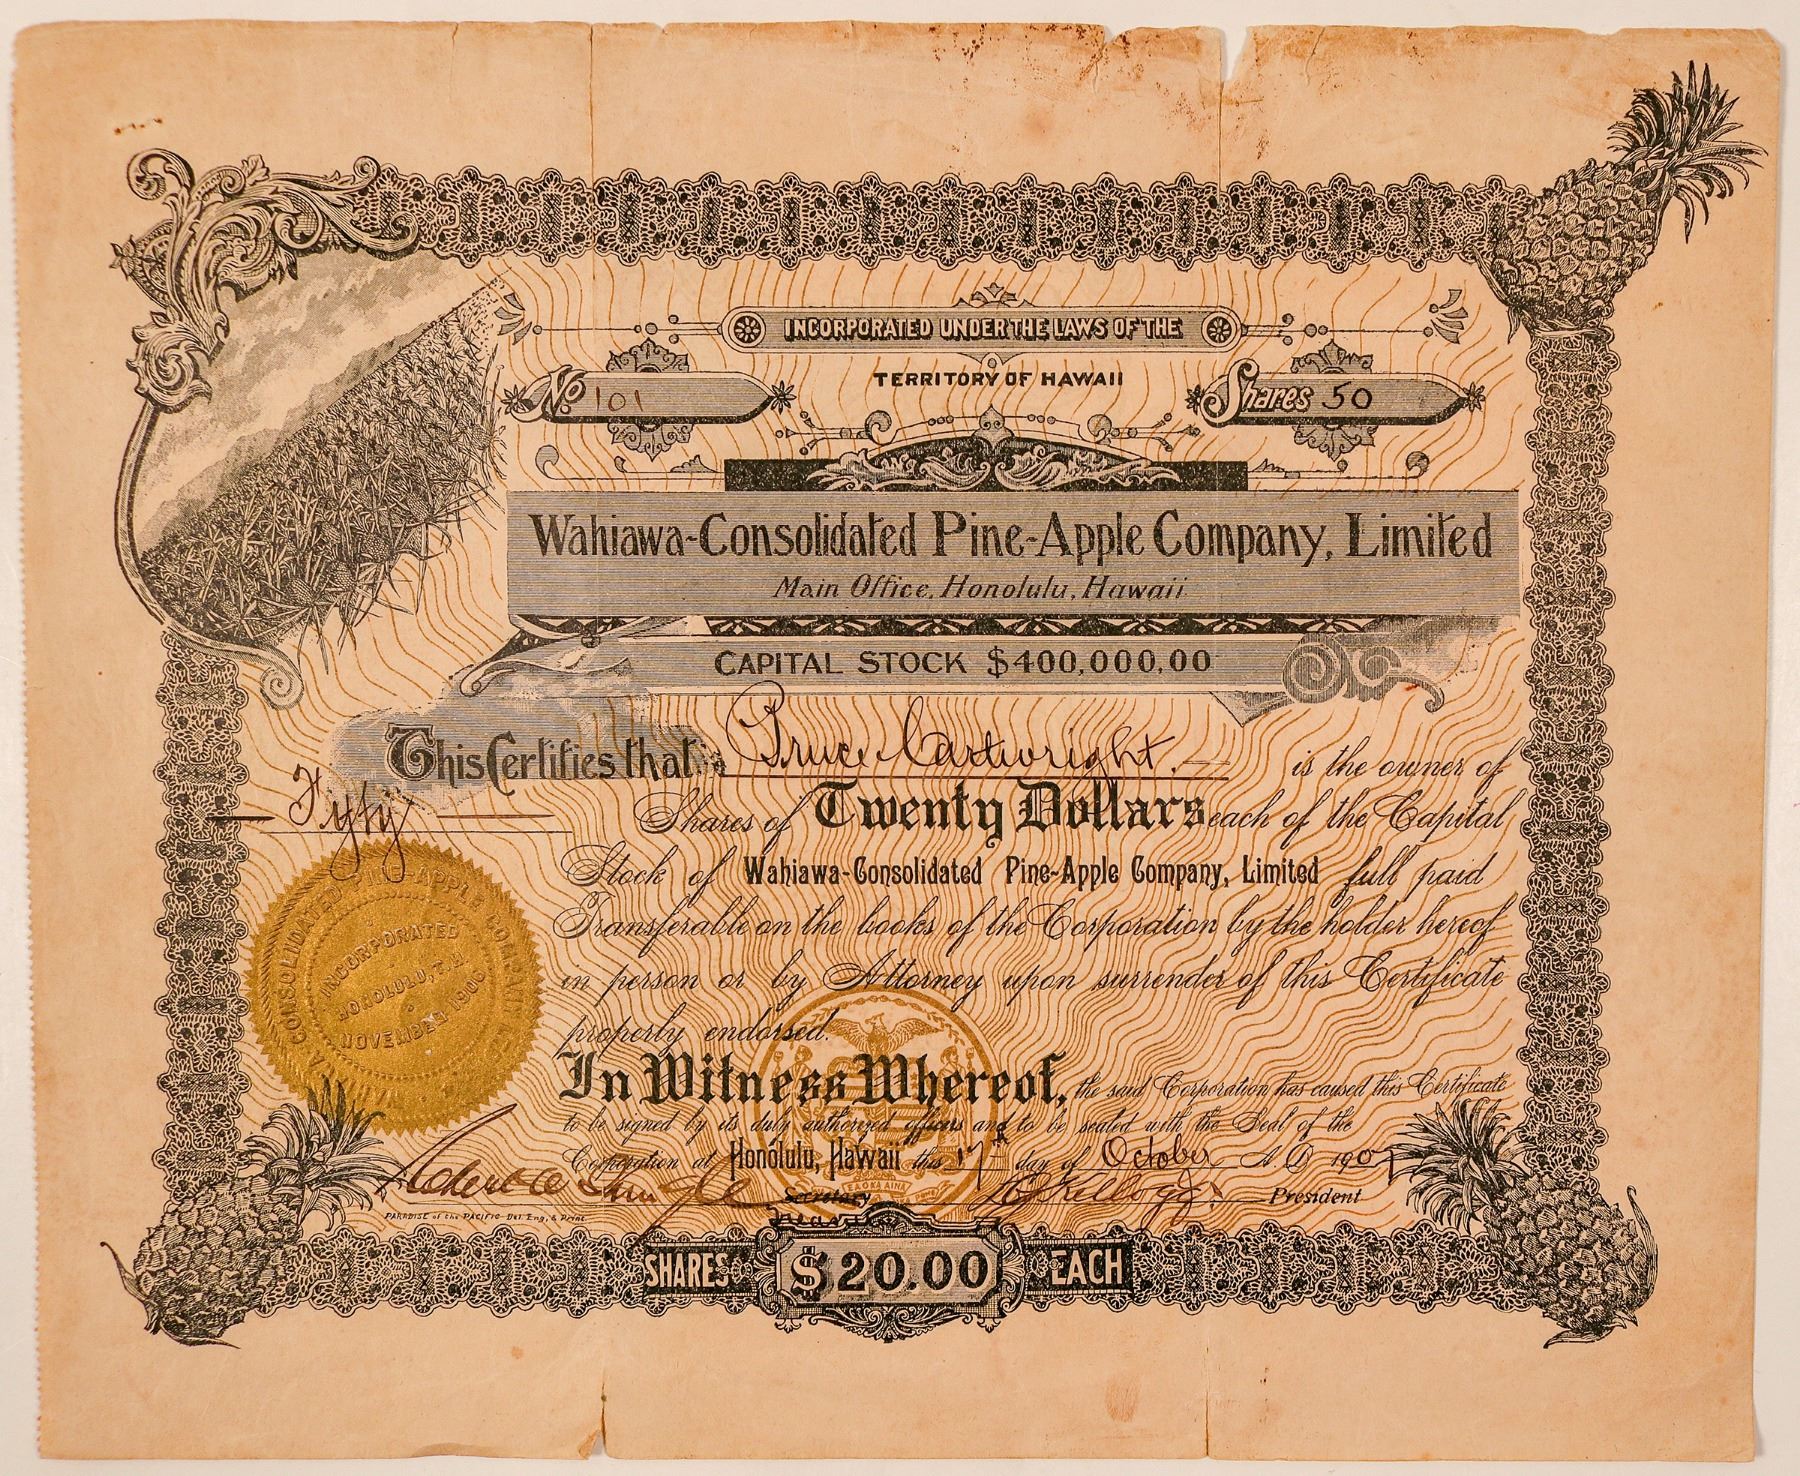 INCORPORATED UNDER THE LAWS OF THE
TERRITORY OF HAWAII
No. 101
Shares 50
Wahiawa-Consolidated Pine-Apple Company, Limited
Main Office, Honolulu, Hawaii
CAPITAL STOCK $400,000,00
This Certifies that Bruce Cartwright. is the owner of
Fifty Shares of Twenty Dollars each of the Capital
Stock of Wahiawa-Consolidated Pine-Apple Company, Limited full paid
Transferable on the books of the Corporation by the holder hereof
in person or by Attorney upon surrender of this Certificate
properly endorsed.
In Witness Whereof, the said Corporation has caused this Certificate
to be signed by its duly authorized officers and to be sealed with the Seal of the
Corporation at Honolulu, Hawaii this 17th day of October A D 1907
Secretary
Treasurer
Kellogg President
PARADISE of the PACIFIC Del. Eng, & Print.
SHARES $20.00 EACH
CONSOLIDATED PINE-APPLE COMPANY
INCORPORATED
HONOLULU, T.H.
NOVEMBER 1906